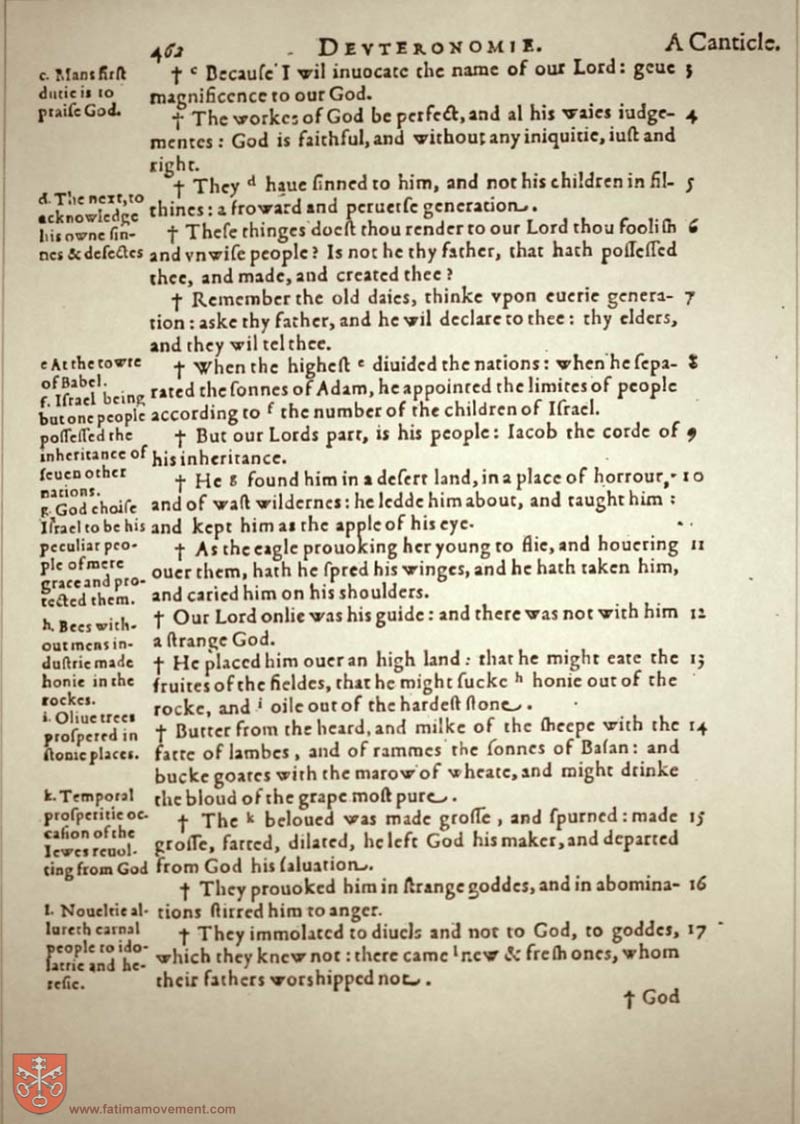 462 DEVTERONOMIE. A Canticle.
c. Mans first
dutie is to
praise God.
† ᶜ Becauſe I wil inuocate the name of our Lord: geue 3
magnificence to our God.
† The workes of God be perfect, and al his waies iudge- 4
mentes: God is faithful, and without any iniquitie, iuſt and
right.
† They ᵈ haue ſinned to him, and not his children in fil- 5
thines: a froward and peruerſe generation.
d. The next, to
acknowledge
his owne ſin-
nes & defectes
† Theſe thinges doeſt thou render to our Lord thou fooliſh 6
and vnwiſe people? Is not he thy father, that hath poſſeſſed
thee, and made, and created thee?
† Remember the old daies, thinke vpon euerie genera- 7
tion: aske thy father, and he wil declare to thee: thy elders,
and they wil tel thee.
e At the towre
of Babel.
f. Iſrael being
but one people
poſſeſſed the
inheritance of
ſeuen other
nations.
† When the higheſt ᵉ diuided the nations: when he ſepa- 8
rated the ſonnes of Adam, he appointed the limites of people
according to ᶠ the number of the children of Iſrael.
† But our Lords part, is his people: Iacob the corde of 9
his inheritance.
† He ᵍ found him in a deſert land, in a place of horrour, 10
and of waſt wildernes: he ledde him about, and taught him:
and kept him as the apple of his eye.
g. God choiſe
Iſrael to be his
peculiar peo-
ple of mere
grace and pro-
tected them.
† As the eagle prouoking her young to flie, and houering 11
ouer them, hath he ſpred his winges, and he hath taken him,
and caried him on his shoulders.
† Our Lord onlie was his guide: and there was not with him 12
a ſtrange God.
h. Bees with-
out mens in-
duſtrie made
honie in the
rockes.
† He placed him ouer an high land: that he might eate the 13
fruites of the fieldes, that he might ſucke ʰ honie out of the
rocke, and ⁱ oile out of the hardeſt ſtone.
i. Oliue trees
proſpered in
ſtonie places.
† Butter from the heard, and milke of the ſheepe with the 14
fatte of lambes, and of rammes the ſonnes of Baſan: and
bucke goates with the marow of wheate, and might drinke
the bloud of the grape moſt pure.
k. Temporal
proſperitie oc-
caſion of the
Iewes reuol-
ting from God
† The ᵏ beloued was made groſſe, and ſpurned: made 15
groſſe, fatted, dilated, he left God his maker, and departed
from God his ſaluation.
† They prouoked him in ſtrange goddes, and in abomina- 16
tions ſtirred him to anger.
l. Noueltie al-
lureth carnal
people to ido-
latrie and he-
reſie.
† They immolated to diuels and not to God, to goddes, 17
which they knew not: there came ˡ new & freſh ones, whom
their fathers worshipped not.
† God
www.fatimamovement.com